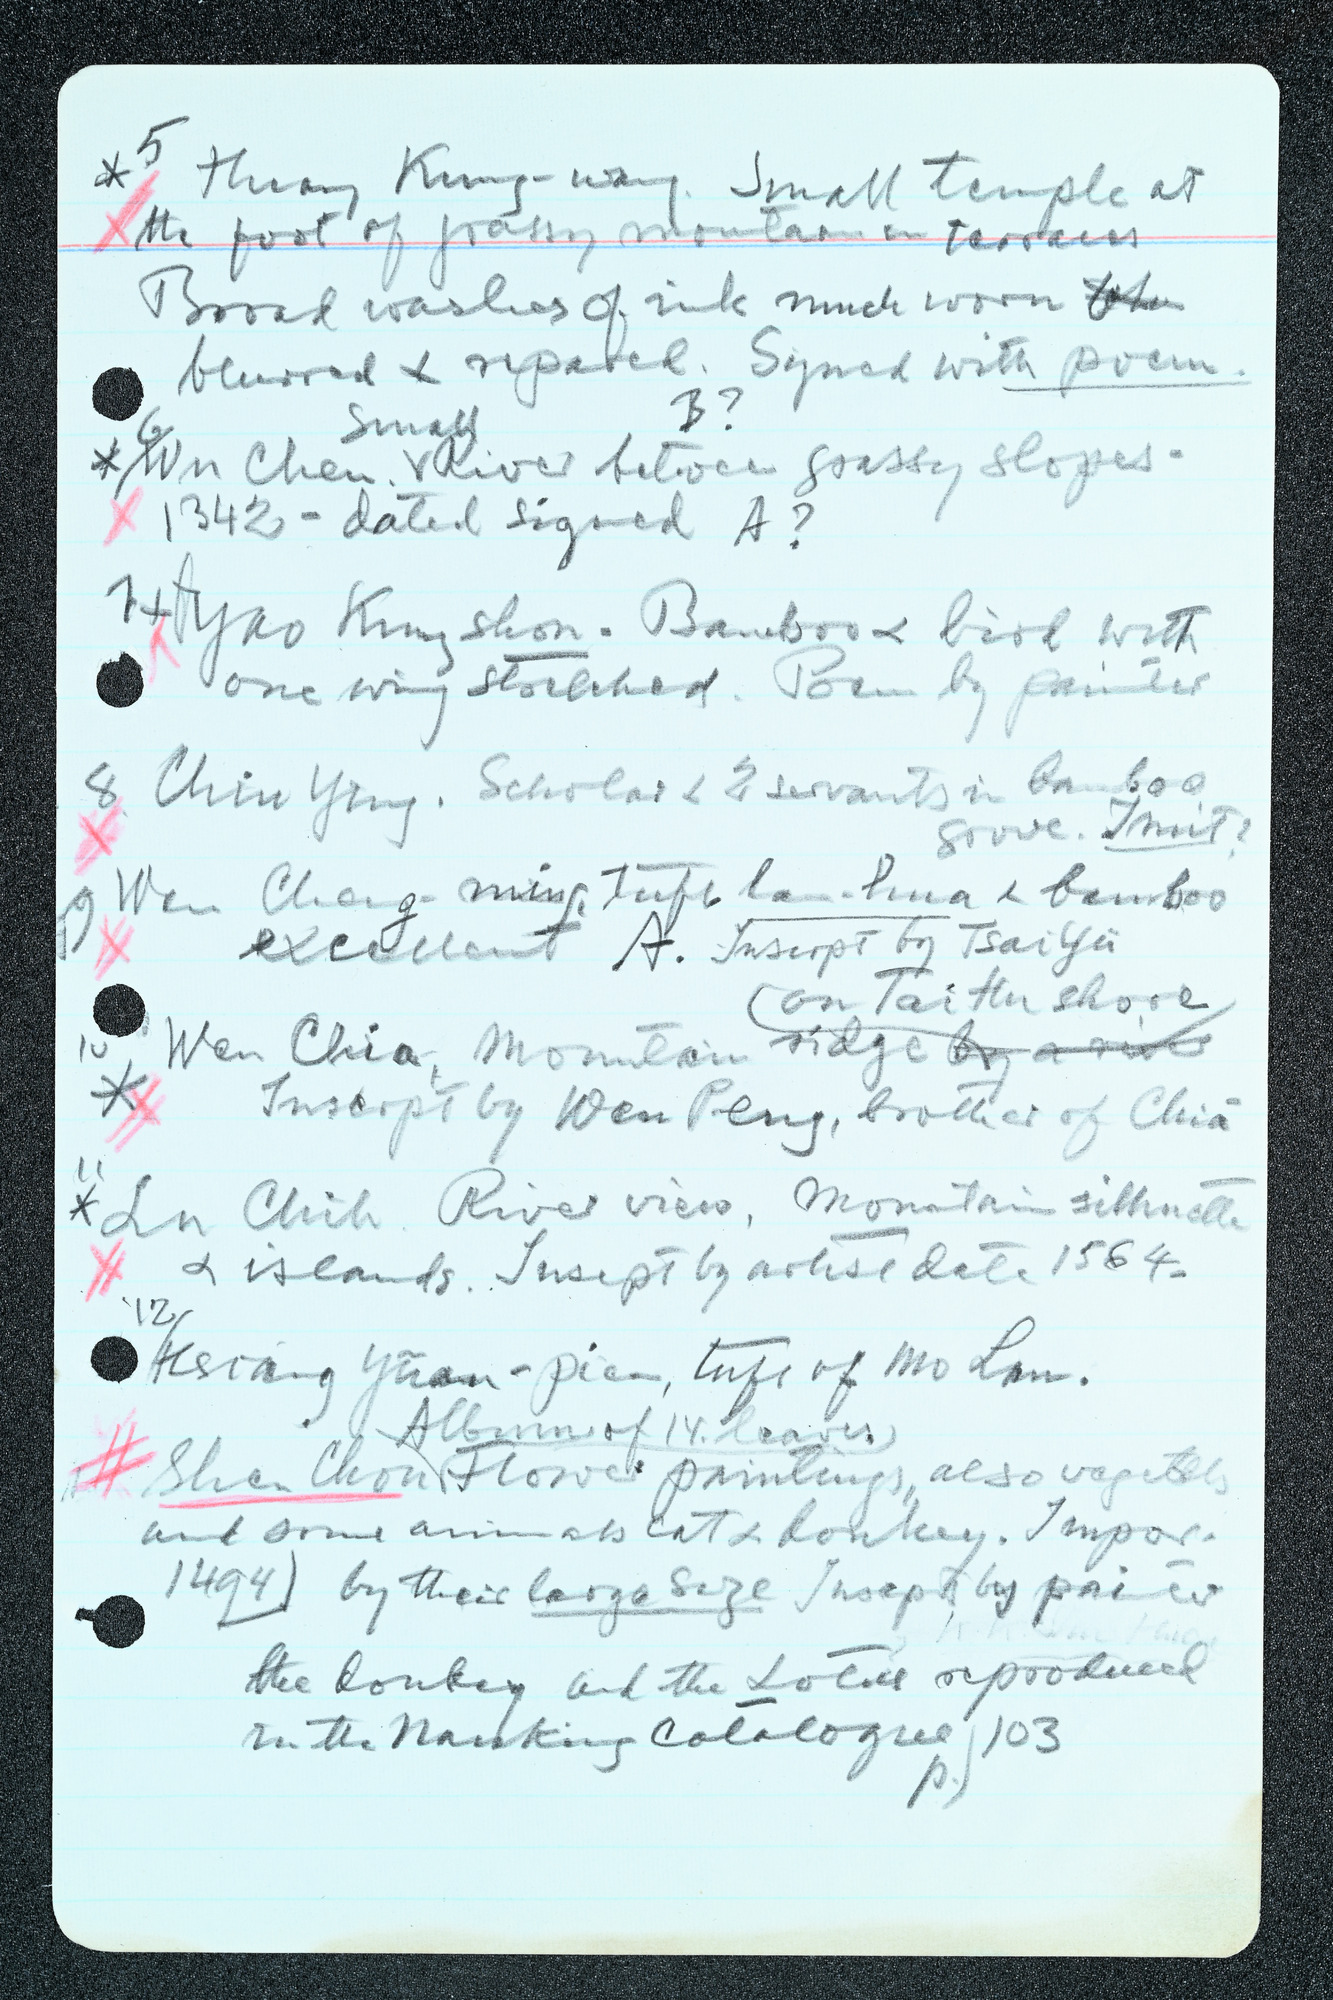 *5 Huang Kung-wang. Small temple at
the foot of grassy mountain in terraces
Broad washes of ink much worn
blurred & repaired. Signed with poem.
B?
6 Small
* Wu Chen. River between grassy slopes.
1342 - dated signed A?
7 Yao Kung shou. Bamboo & bird with
one wing stretched. Poem by painter
8 Chiu Ying. Scholar & 2 servants in bamboo
grove. Imit?
9 Wen Cheng-ming, Tuft lan-hua & bamboo
excellent A. Inscript by Tsai Yü
(on Tai Hu shore
10 Wen Chia, Mountain ridge by a river
* Inscript by Wen Peng, brother of Chia
11
* Lu Chih. River view, Mountain silhuette
& islands. Inscpt by artist date 1564.
12
Hsiang Yüan-pien, tuft of Mo Lan.
Album of 14 leaves
Shen Chou Flower paintings, also vegetbls
and some animals cat & donkey. Impor.
1494) by their large size Inscpt by painter
the donkey and the Lotus reproduced
in the Nanking Catalogue 103
p.)